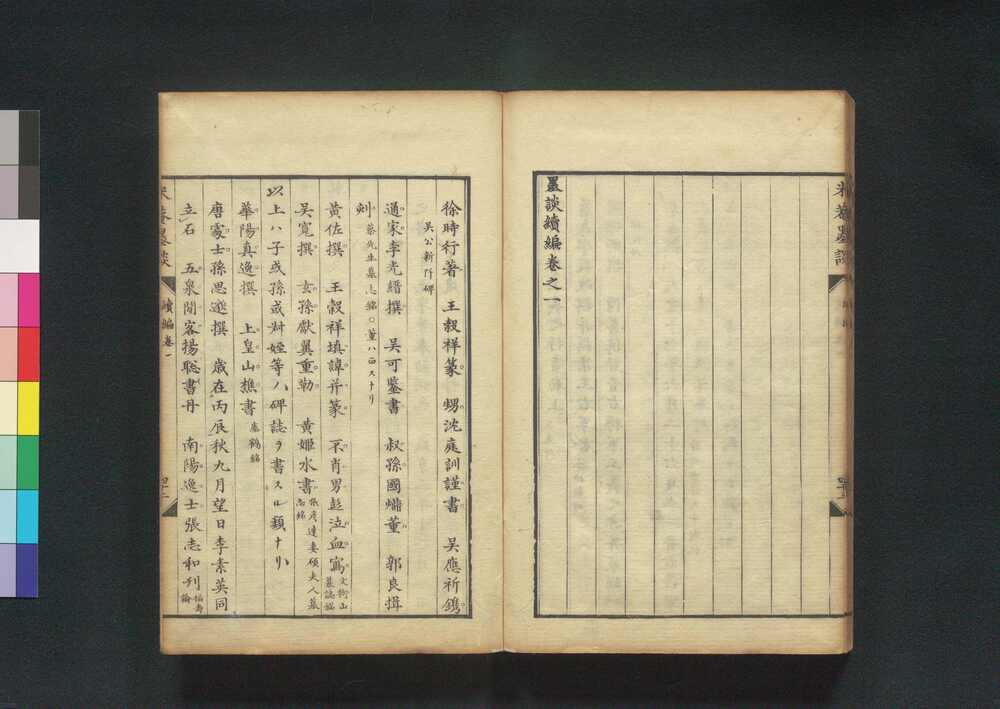 墨談續編卷之一
徐時行著 王穀祥篆 甥沈庭訓謹書 吳應祈鐫
吳公新阡碑
通家李光縉撰 吳可鑒書 叔孫國
董 郭良揖
刻
蔡先生墓志銘○董ハ正スナリ
黄佐撰 王穀祥填諱并篆 不肖男彭泣血寫
文衡山
墓誌銘
吳寬撰 玄孫獻翼重勒 黄姬水書
張彦達妻碩夫人墓
志銘
以上ハ子或孫或甥姪等ノ碑誌ヲ書スル類ナリ
華陽真逸撰 上皇山樵書
瘞鶴銘
唐處士孫思邈撰 歳在丙辰秋九月望日李素英同
立石 五泉閒客揚聡書丹 南陽逸士張志和刊
福壽
論
米菴墨談
續編卷一